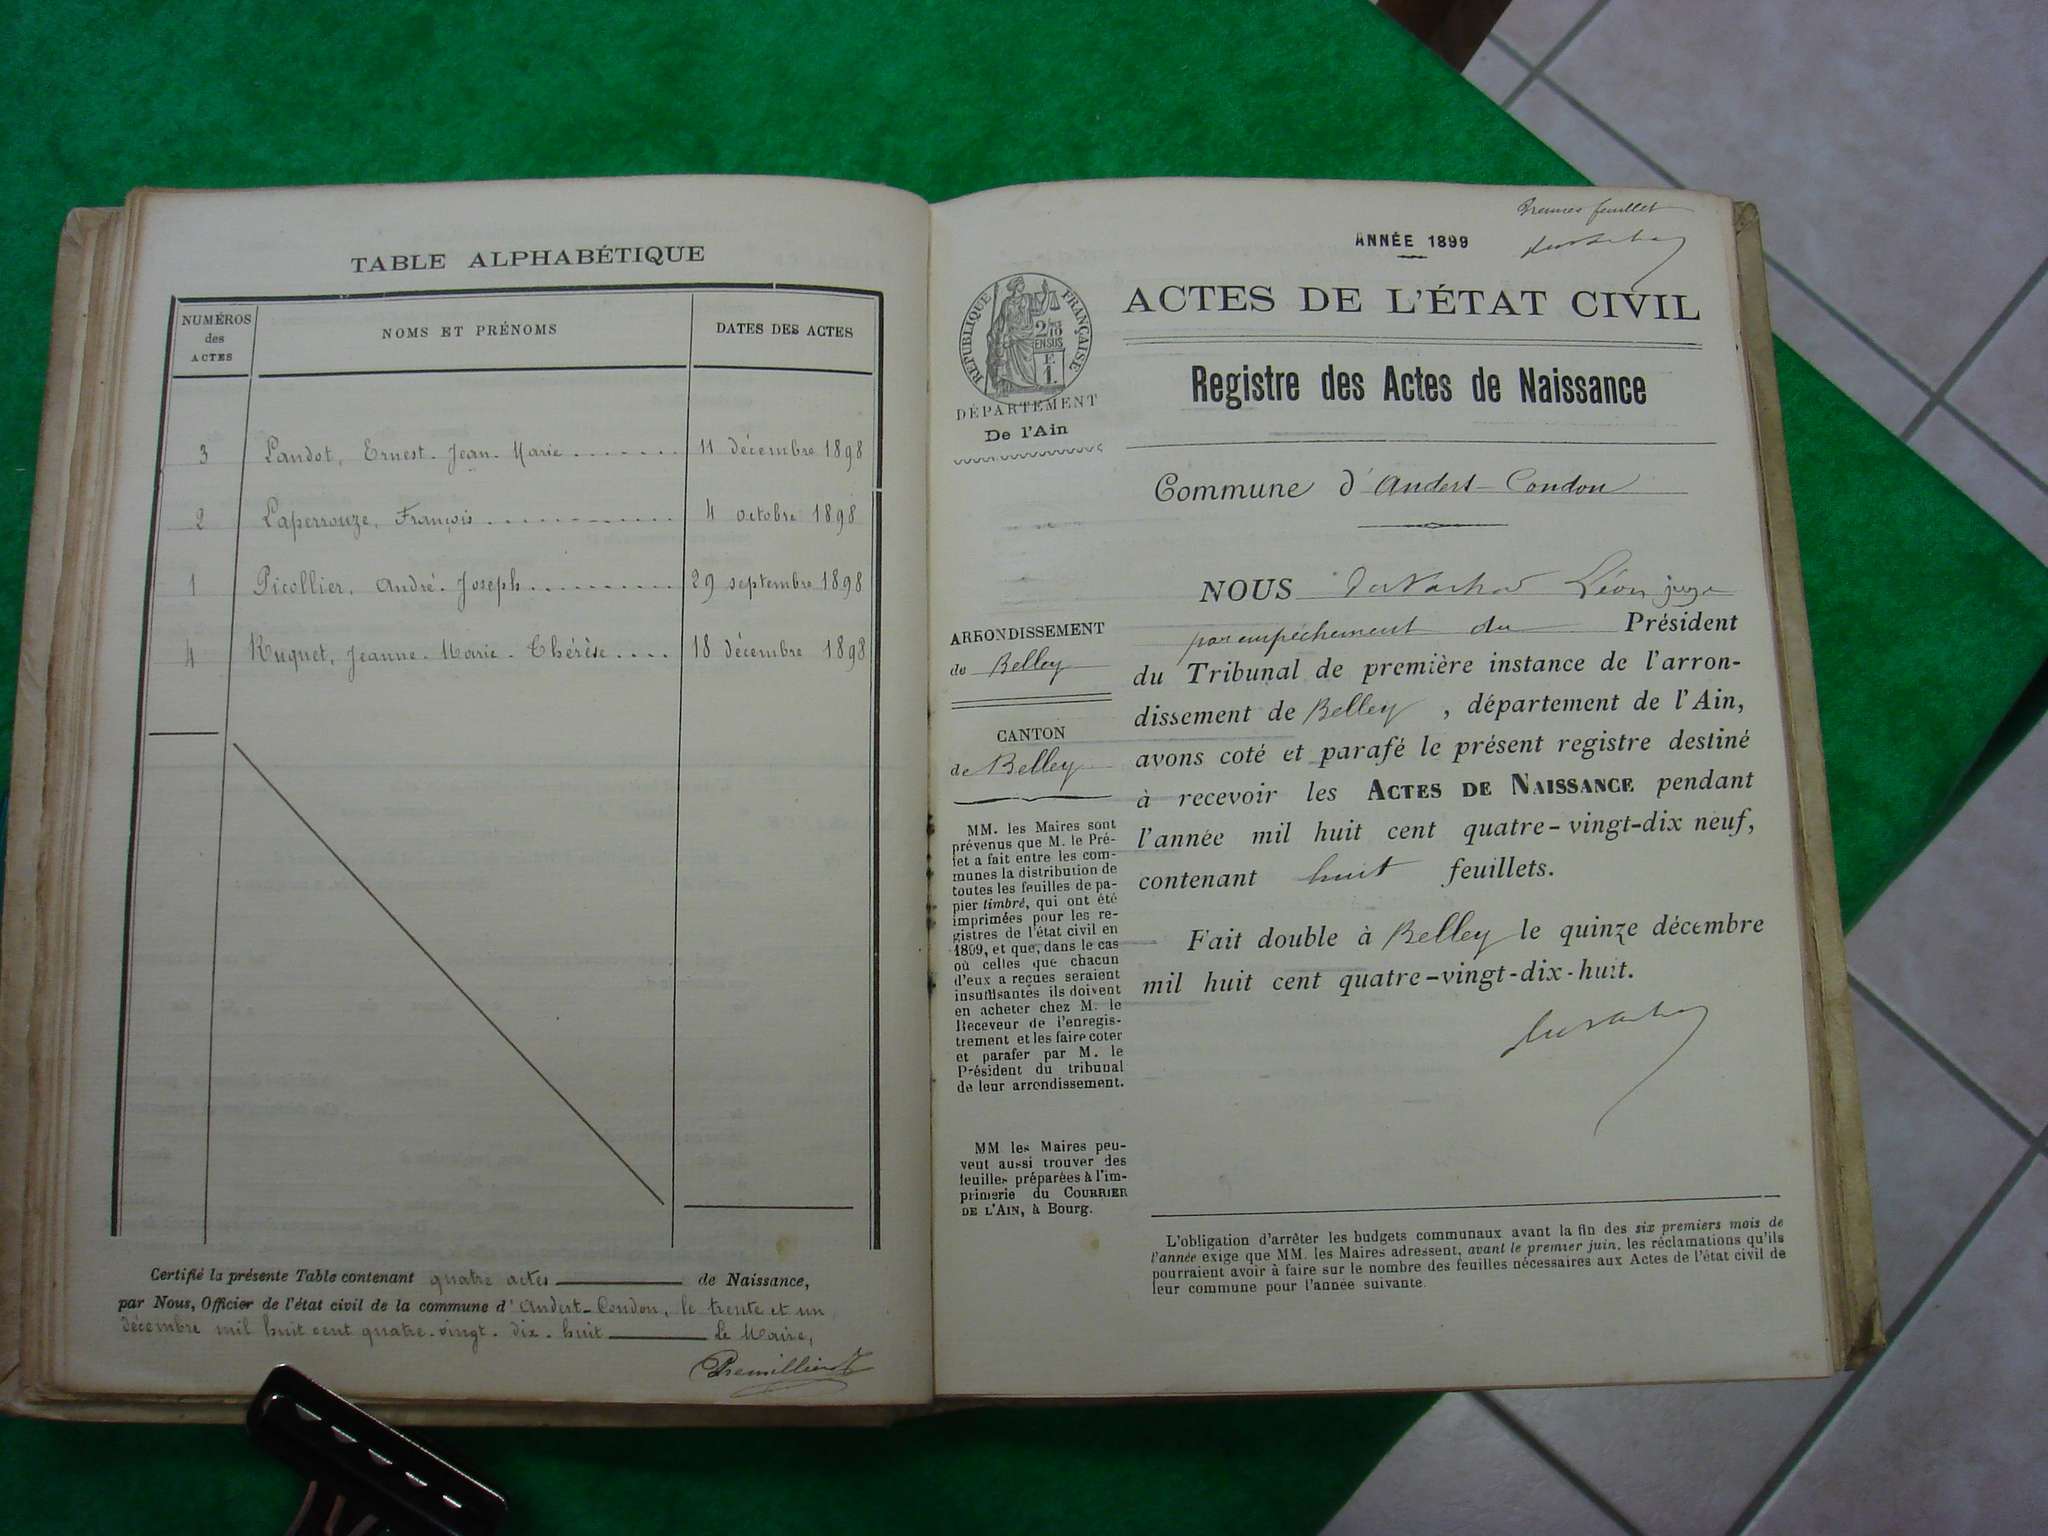 TABLE ALPHABÉTIQUE
NUMÉROS
des
ACTES
NOMS ET PRÉNOMS
DATES DES ACTES
3 Landot, Ernest. Jean. Marie ....... 11 décembre 1898
2 Laperrouze, François ........... 4 octobre 1898
1 Picollier, André. Joseph ......... 29 septembre 1898
4 Ruguet, Jeanne. Marie. Thérèse .... 18 décembre 1898
Certifié la présente Table contenant quatre actes de Naissance,
par Nous, Officier de l'état civil de la commune d'Andert-Condon, le trente et un
décembre mil huit cent quatre-vingt-dix-huit Le Maire,
Premier feuillet
ANNÉE 1899
RÉPUBLIQUE FRANÇAISE
DÉPARTEMENT
De l'Ain
ACTES DE L'ÉTAT CIVIL
Registre des Actes de Naissance
Commune d'Andert-Condon
ARRONDISSEMENT
de Belley
CANTON
de Belley
MM. les Maires sont
prévenus que M. le Pré-
fet a fait entre les com-
munes la distribution de
toutes les feuilles de pa-
pier timbré, qui ont été
imprimées pour les re-
gistres de l'état civil en
1899, et que, dans le cas
où celles que chacun
d'eux a reçues seraient
insuffisantes ils doivent
en acheter chez M. le
Receveur de l'enregis-
trement et les faire coter
et parafer par M. le
Président du tribunal
de leur arrondissement.
MM les Maires peu-
vent aussi trouver des
feuilles préparées à l'im-
primerie du COURRIER
DE L'AIN, à Bourg.
NOUS Léon juge
par empêchement du Président
du Tribunal de première instance de l'arron-
dissement de Belley, département de l'Ain,
avons coté et parafé le présent registre destiné
à recevoir les ACTES DE NAISSANCE pendant
l'année mil huit cent quatre-vingt-dix neuf,
contenant huit feuillets.
Fait double à Belley le quinze décembre
mil huit cent quatre-vingt-dix-huit.
L'obligation d'arrêter les budgets communaux avant la fin des six premiers mois de
l'année exige que MM. les Maires adressent, avant le premier juin, les réclamations qu'ils
pourraient avoir à faire sur le nombre des feuilles nécessaires aux Actes de l'état civil de
leur commune pour l'année suivante.